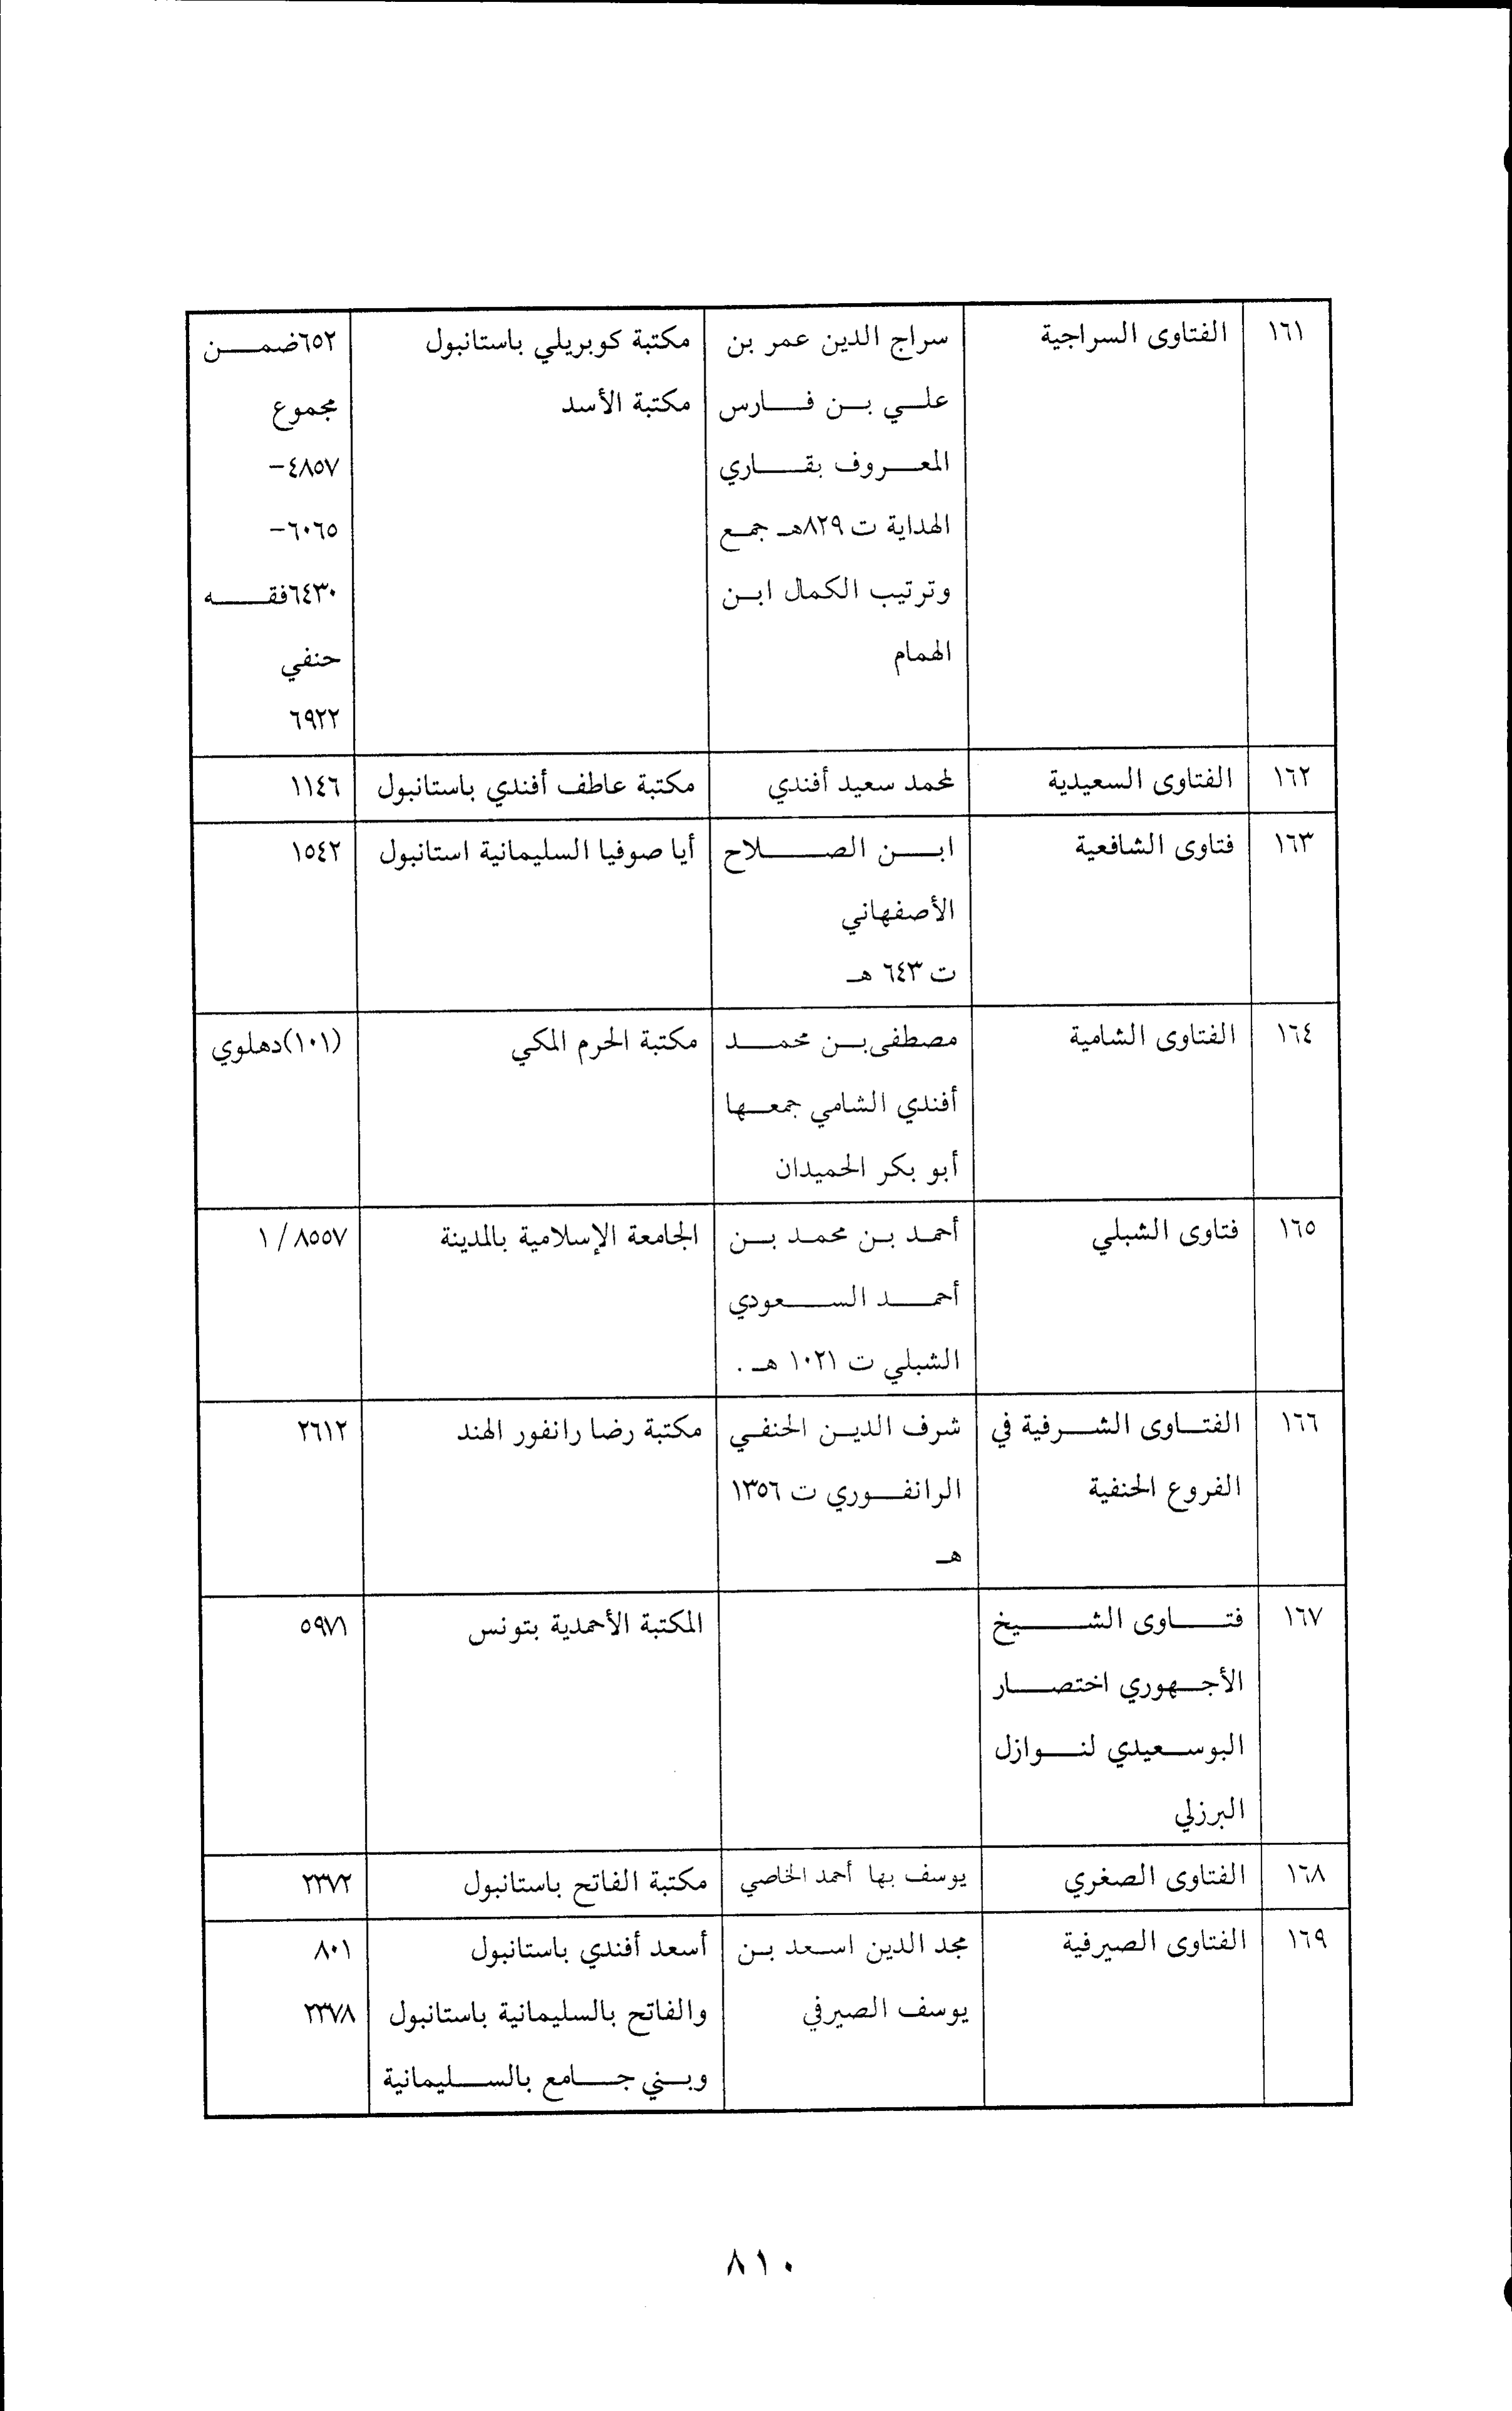 ١٦١
الفتاوى السراجية
سراج الدين عمر بن
علي بن فارس
المعروف بقاري
الهداية ت ٨٢٩هـ جمع
وترتيب الكمال ابن
الهمام
مكتبة كوبريلي باستانبول
مكتبة الأسد
٦٥٢ضمن
مجموع
٤٨٥٧-
٦٠٦٥-
٦٤٣٠فقه
حنفي
٦٩٢٢
١٦٢
الفتاوى السعيدية
لمحمد سعيد أفندي
مكتبة عاطف أفندي باستانبول
١١٤٦
١٦٣
فتاوى الشافعية
ابن الصلاح
الأصفهاني
ت ٦٤٣ هـ
أيا صوفيا السليمانية استانبول
١٥٤٢
١٦٤
الفتاوى الشامية
مصطفى بن محمد
أفندي الشامي جمعها
أبو بكر الحميدان
مكتبة الحرم المكي
(١٠١)دهلوي
١٦٥
فتاوى الشبلي
أحمد بن محمد بن
أحمد السعودي
الشبلي ت ١٠٢١ هـ .
الجامعة الإسلامية بالمدينة
٨٥٥٧ / ١
١٦٦
الفتاوى الشرفية في
الفروع الحنفية
شرف الدين الحنفي
الرانفوري ت ١٣٥٦
هـ
مكتبة رضا رانفور الهند
٢٦١٢
١٦٧
فتاوى الشيخ
الأجهوري اختصار
البوسعيدي لنوازل
البرزلي
المكتبة الأحمدية بتونس
٥٩٧١
١٦٨
الفتاوى الصغرى
يوسف بها أحمد الخاصي
مكتبة الفاتح باستانبول
٢٣٧٢
١٦٩
الفتاوى الصيرفية
مجد الدين اسعد بن
يوسف الصيرفي
أسعد أفندي باستانبول
والفاتح بالسليمانية باستانبول
وبني جامع بالسليمانية
٨٠١
٢٣٧٨
٨١٠